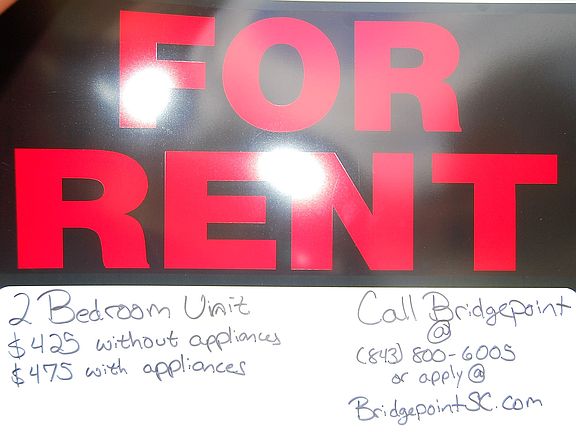 FOR
RENT
2 Bedroom Unit
$425 without appliances
$475 with appliances
Call Bridgepoint
@
(843) 800-6005
or apply @
BridgepointSC.com